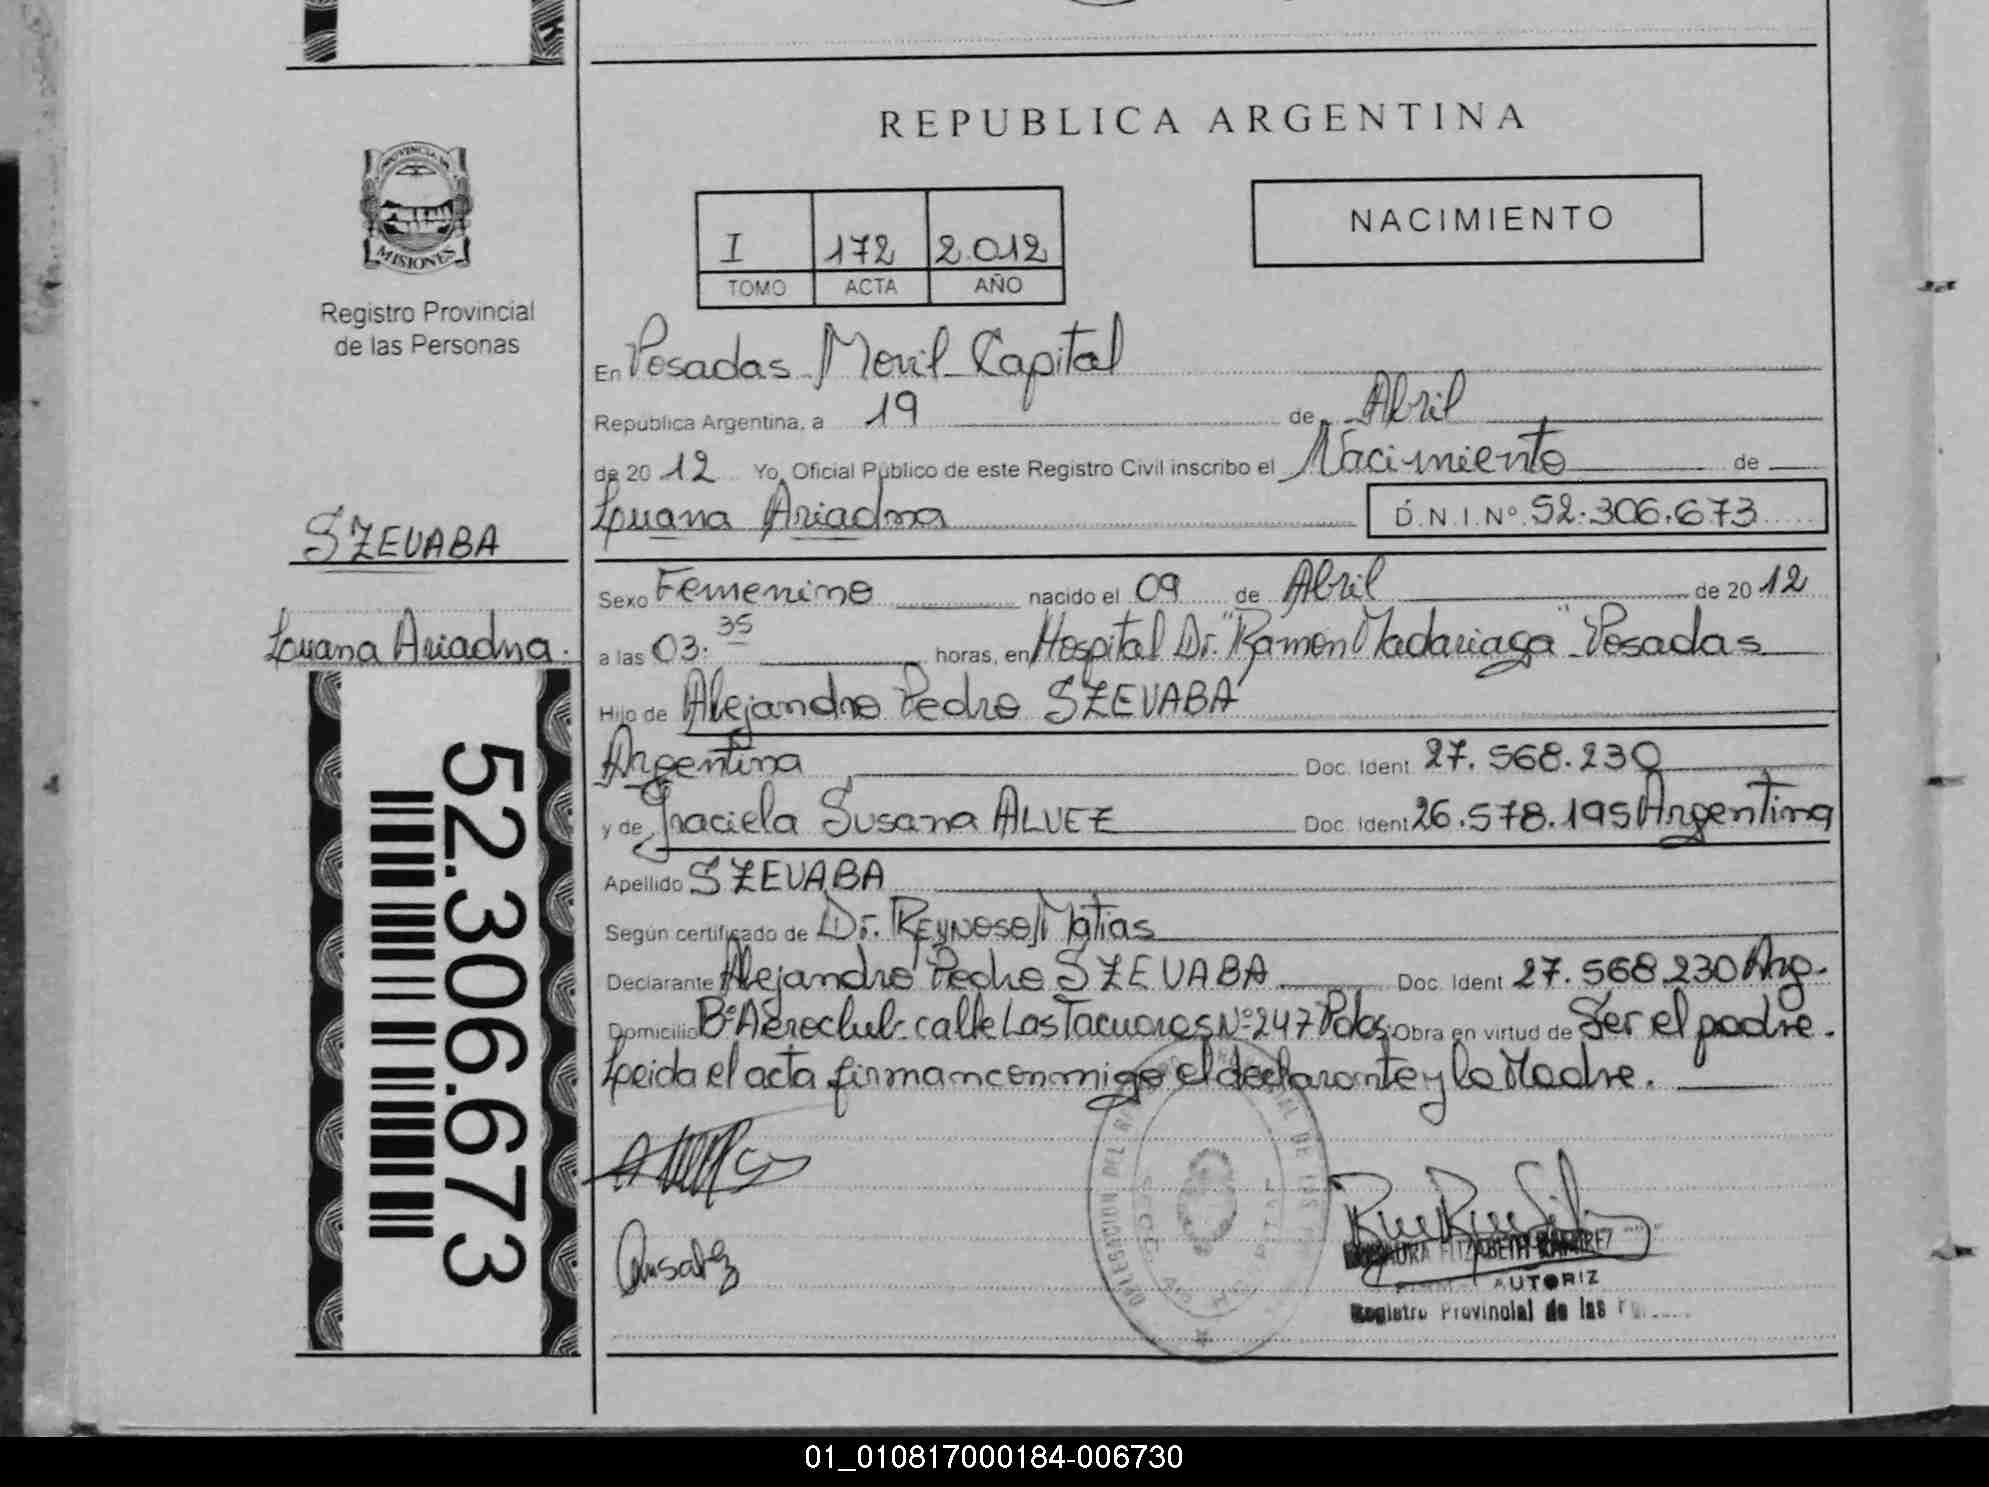 REPUBLICA ARGENTINA
PROVINCIA DE
MISIONES
Registro Provincial
de las Personas
NACIMIENTO
I 172 2.012
TOMO ACTA AÑO
En Posadas Movil Capital
Republica Argentina, a 19 de Abril
de 20 12 Yo, Oficial Público de este Registro Civil inscribo el Nacimiento de
Luana Ariadna D.N.I.Nº 52.306.673
SZEVABA
Luana Ariadna.
52.306.673
Sexo Femenino nacido el 09 de Abril de 20 12
a las 03:35 horas, en Hospital Dr. "Ramon Madariaga" Posadas
Hijo de Alejandro Pedro SZEVABA
Argentina Doc. Ident 27.568.230
y de Graciela Susana ALVEZ Doc. Ident 26.578.195 Argentina
Apellido SZEVABA
Según certificado de Dr. REYNOSO, Matias
Declarante Alejandro Pedro SZEVABA Doc. Ident 27.568.230 Arg.
Domicilio Bº Aeroclub- calle Las Tacuaras Nº 247 Pdas. Obra en virtud de Ser el padre.
Leida el acta firman conmigo el declarante y la Madre.
DELEGACION DEL
DE LAS
ELIZABETH RAMIREZ
AUTORIZ
Registro Provincial de las
01_010817000184-006730